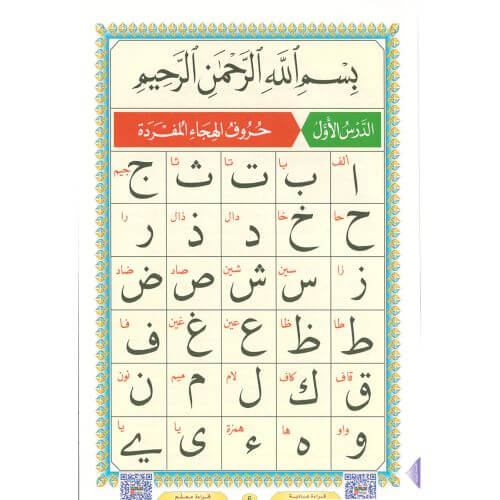 بِسْمِ اللَّهِ الرَّحْمَٰنِ الرَّحِيمِ
الدَّرْسُ الْأَوَّلُ حُرُوفُ الْهِجَاءِ الْمُفْرَدَةِ
الف با تا ثا جيم
ا ب ت ث ج
حا خا دال ذال را
ح خ د ذ ر
زا سين شين صاد ضاد
ز س ش ص ض
طا ظا عين غين فا
ط ظ ع غ ف
قاف كاف لام ميم نون
ق ك ل م ن
واو ها همزة يا يا
و ه ء ى ے
قراءة عادية 6 قراءة معلم